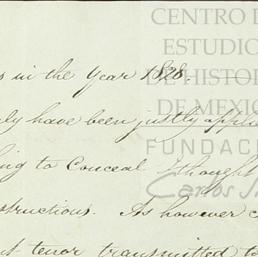 CENTRO D
ESTUDIO
DE HISTOR
DE MEXIC
FUNDAC
Carlos S
s in the Year 1828.
ly have been justly applie
ing to Conceal I thought
structions. As however c
t tenor transmitted to